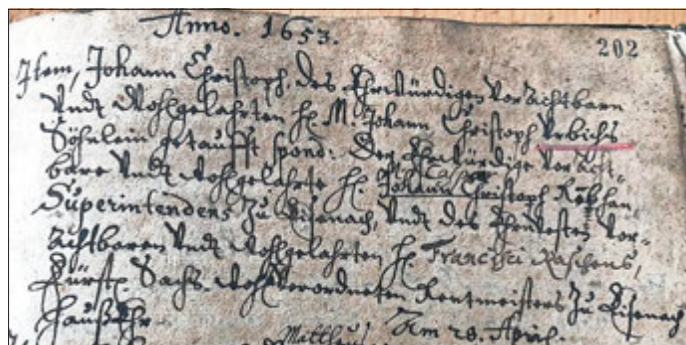 Anno. 1653.
202
Item, Johann Christoph, des Ehrwürdigen Vorachtbarn
Undt Wohlgelahrten H. M. Johann Christoph Urbichs
Söhnlein getaufft spond: Der Ehrwürdige Voracht-
bare Undt Wohlgelahrte H. Johann Christoph
Superintendens Zu Eisenach, Undt des Ehrnvesten Vor-
Achtbaren Undt Wohlgelahrten H. Francisci
Fürstl. Sächs. Wohlverordneten Rentmeisters Zu Eisenach
Haußehr.
Am 28. April.